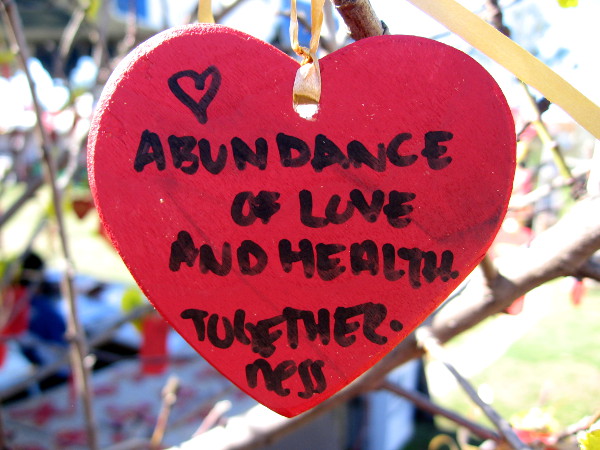 ABUNDANCE
OF LOVE
AND HEALTH.
TOGETHER-
NESS